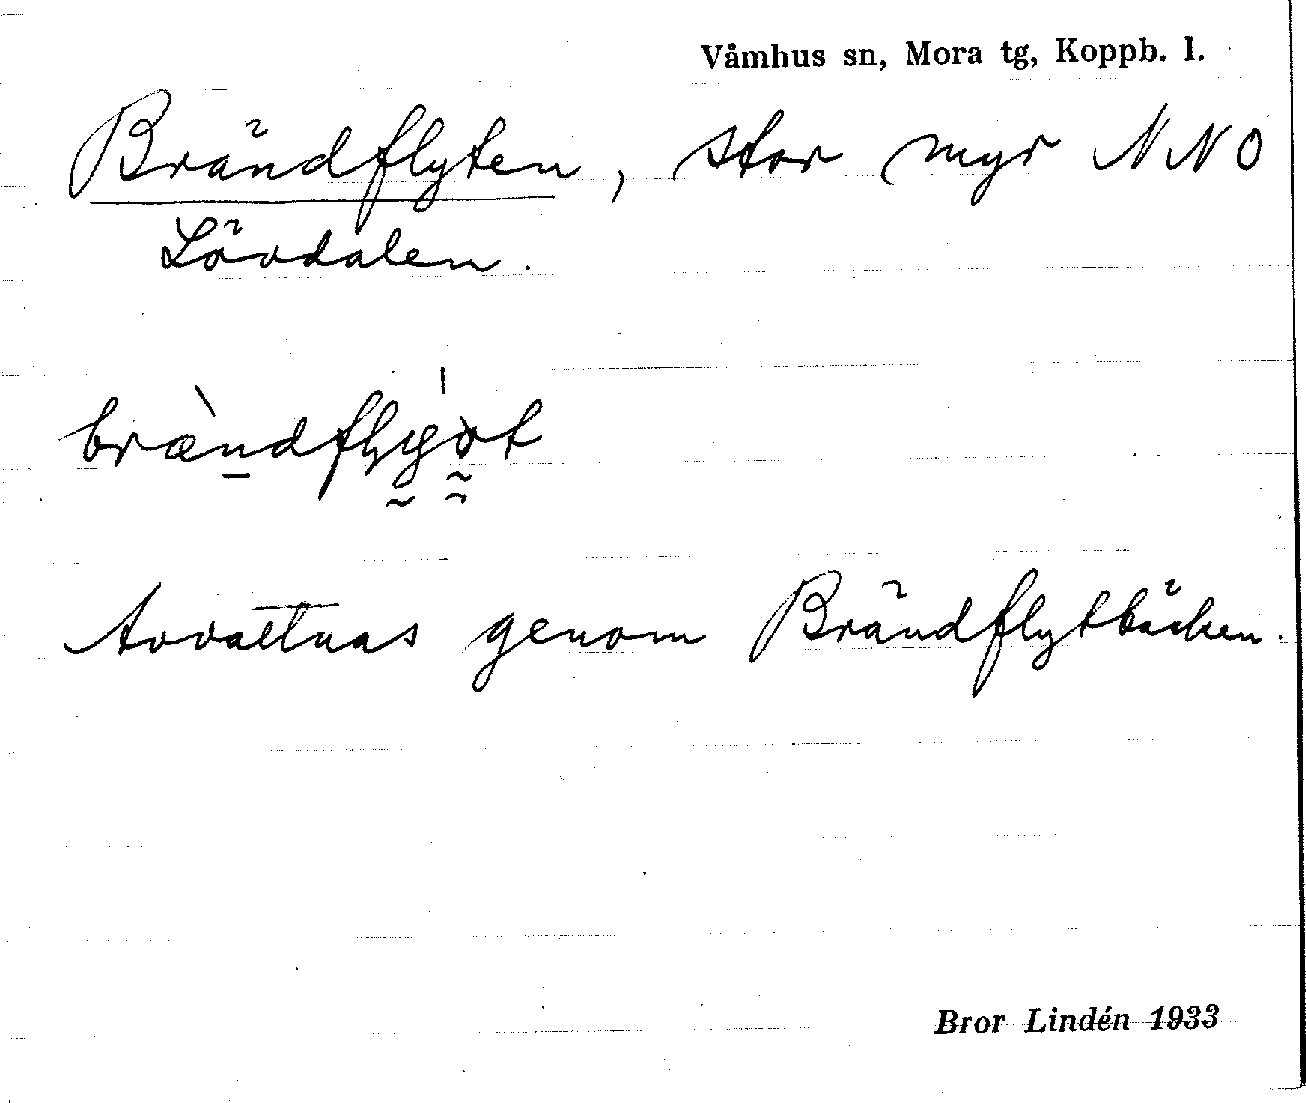 Våmhus sn, Mora tg, Koppb. l.
Brändflyten, stor myr NNO
Lövdalen.
Avvattnas genom Brändflytbäcken.
Bror Lindén 1933